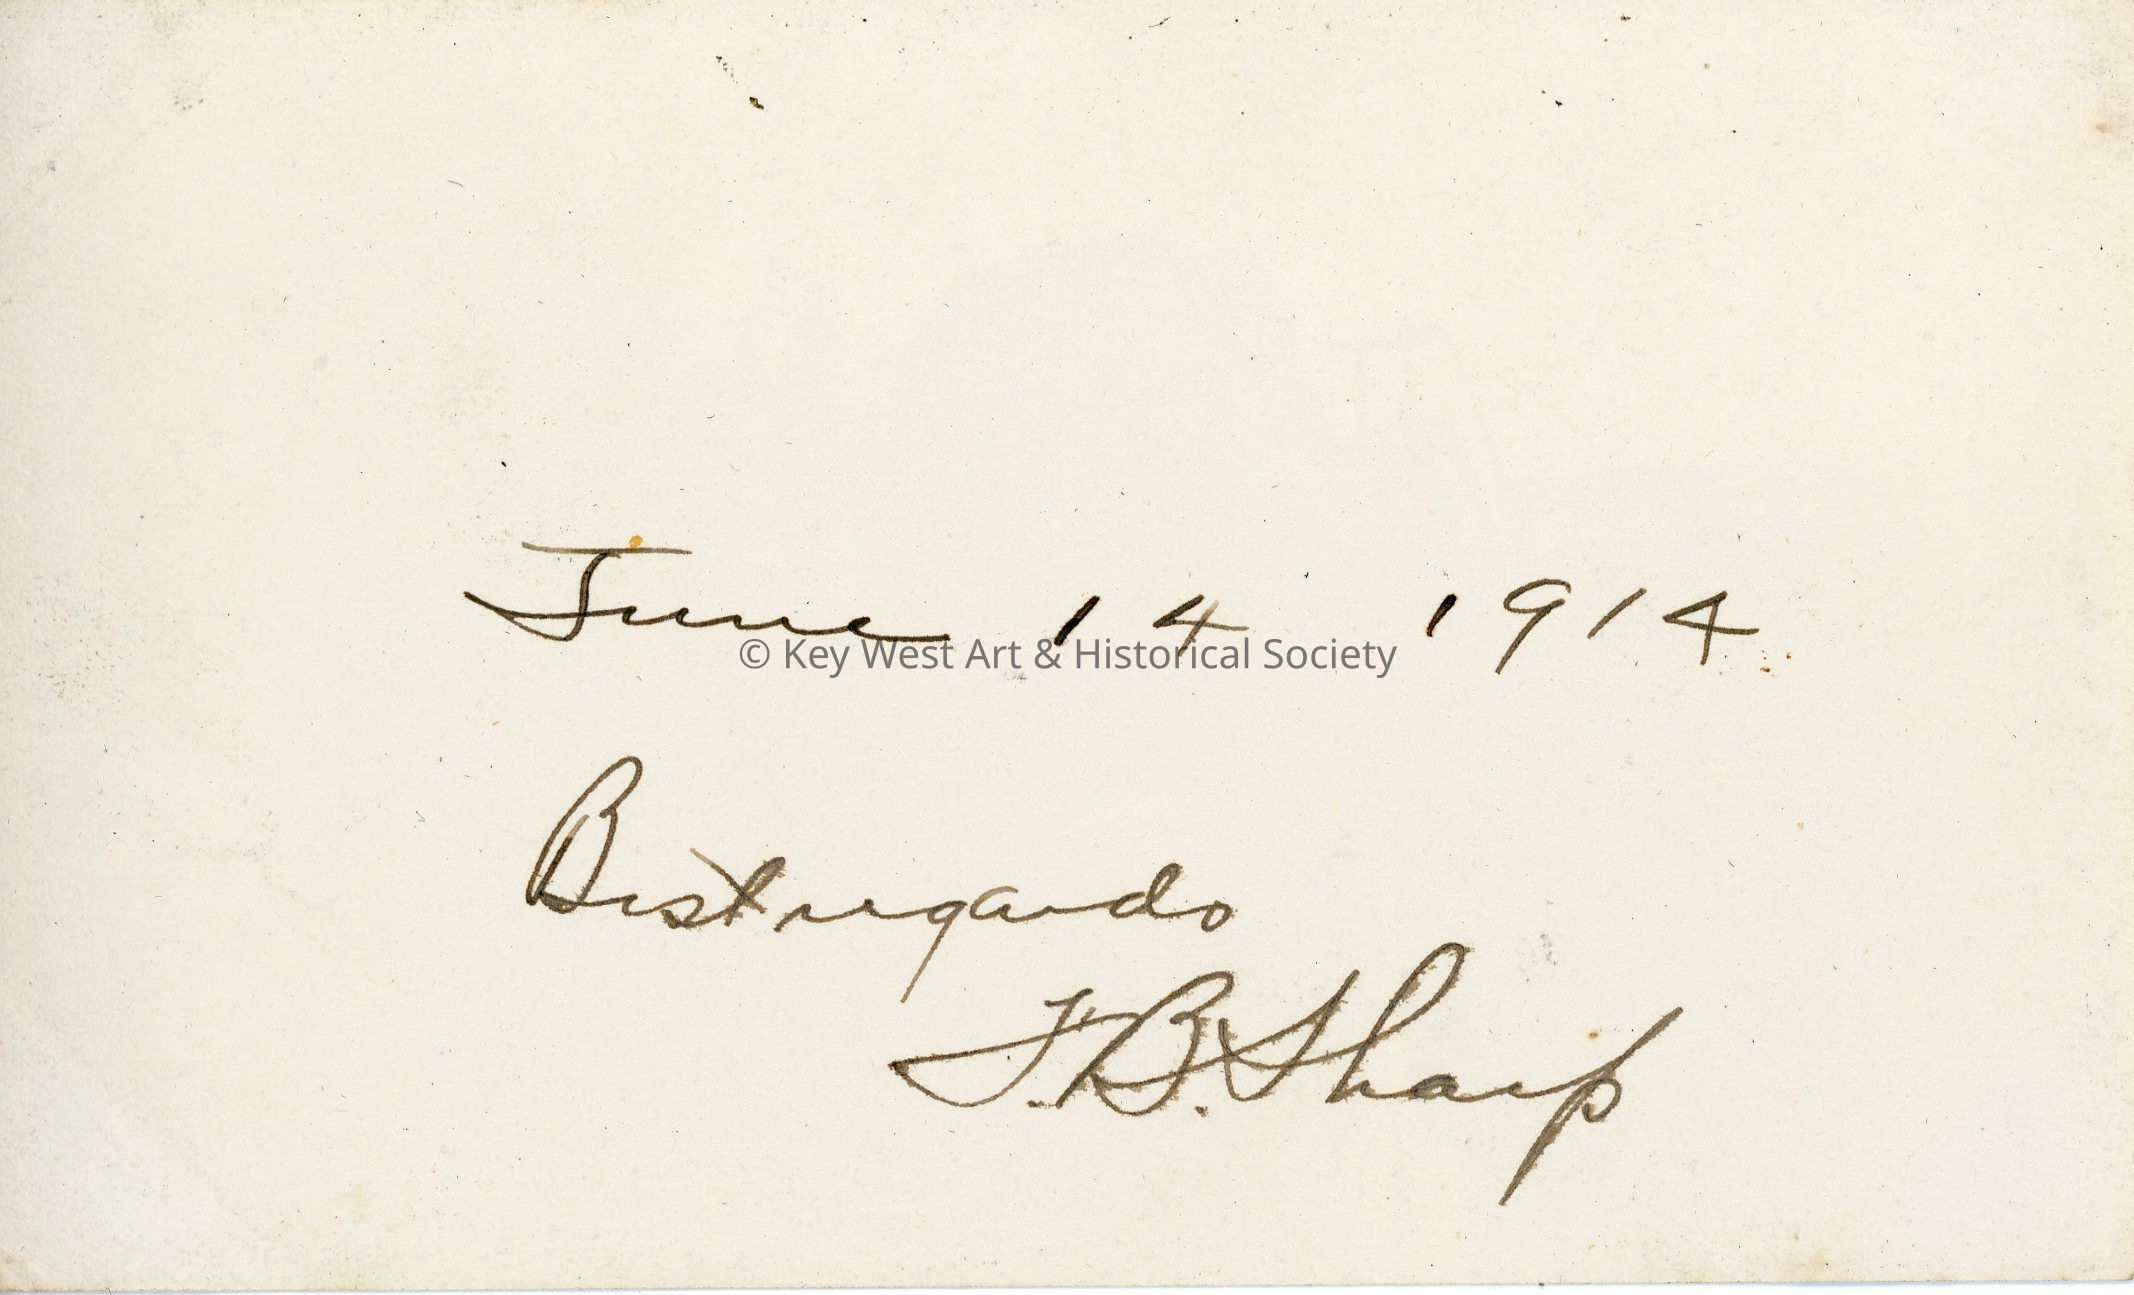 June 14 1914
© Key West Art & Historical Society
Best regards
F. B. Sharp